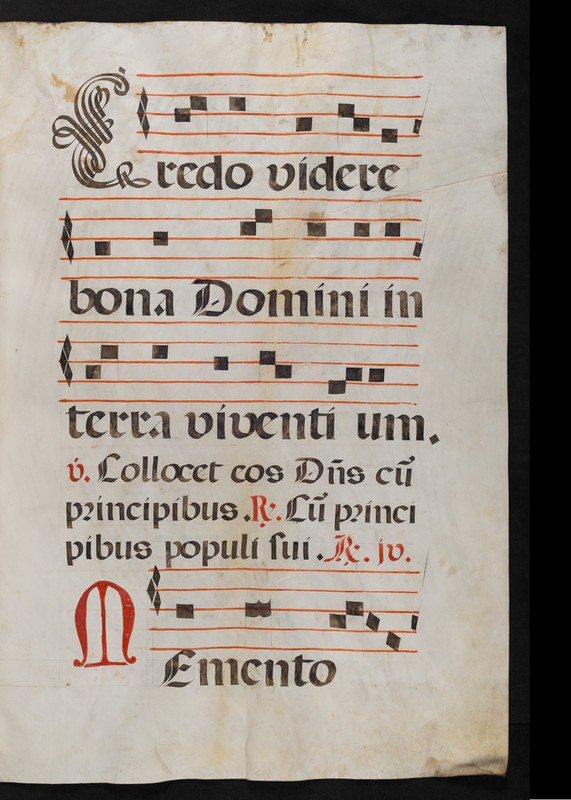 Credo videre
bona Domini in
terra viventi um.
℣. Collocet eos Dn̄s cū
principibus. ℟. Cū princi
pibus populi sui. ℟. jv.
MEmento